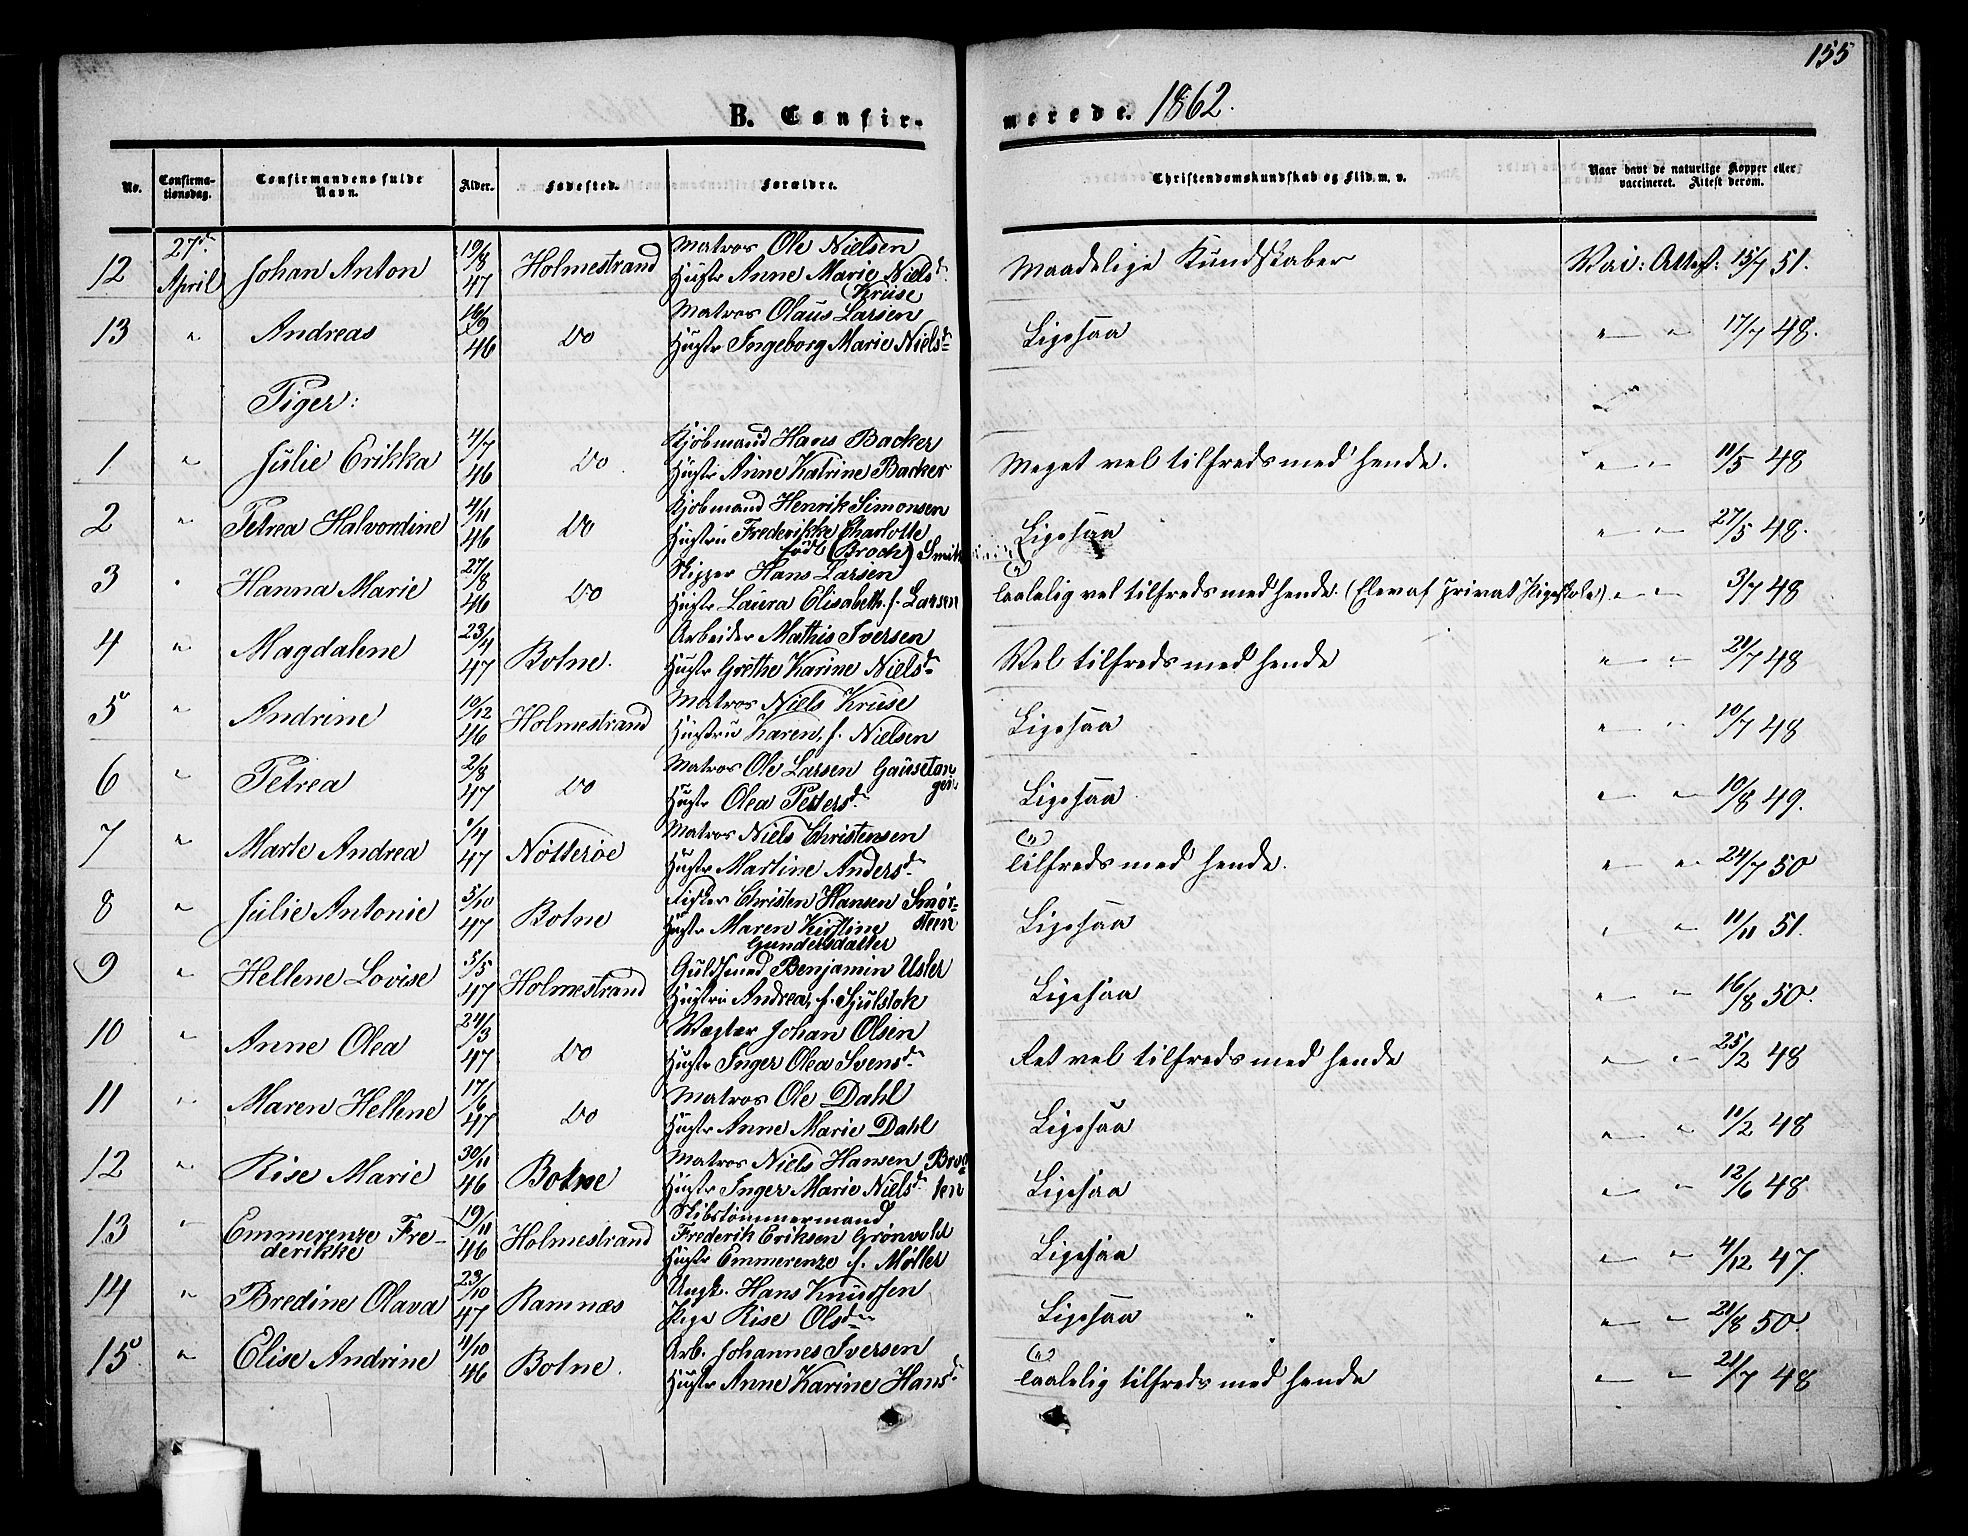 155
B. Confirmerede. 1862.
No. Confirmationsdag. Confirmandens fulde Navn. Alder. Fødested. Forældre. Christendomskundskab og Flid m. v. Naar havt de naturlige Kopper eller vaccineret. Attest derom.
12 27de April Johan Anton 19/8 47 Holmestrand Matros Ole Nielsen Maadelige Kundskaber Vac: Attest: 15/7 51.
Hustr Anne Marie Nielsdr. Kruse
13 " Andreas 46 Do Matros Olaus Larsen Ligesaa " " 17/7 48.
Hustr Ingeborg Marie Nielsdr
Piger:
1 " Julie Erikka 4/7 46 Do. Kjøbmand Hans Backer Meget vel tilfreds med hende. " " 11/5 48
Hustr Anne Katrine Backer
2 " Petrea Halvordine 4/11 46 Do Kjøbmand Henrik Simonsen Ligesaa " " 27/5 48.
Hustru Frederikke Charlotte
født (Brock)
3 " Hanna Marie 27/8 46 Do Skipper Hans Larsen Taalelig vel tilfreds med hende. (Elev af privat Pigeskole) " " 3/7 48
Hustr Laura Elisabeth f. Larsen
4 " Magdalene 23/4 47 Botne. Arbeider Mathis Iversen Vel tilfreds med hende " " 21/7 48
Hustr Grethe Karine Nielsdr
5 " Andrine 10/12 46 Holmestrand Matros Niels Kruse Ligesaa " " 10/7 48
Hustru Karen, f. Nielsen
6 " Petrea 2/8 47 Do Matros Ole Larsen Gausetangen Ligesaa " " 10/8 49.
Hustr Olea Petersdr.
7 " Marte Andrea 1/4 47 Nøtterøe Matros Niels Christensen Tilfreds med hende. " " 24/7 50
Hustr Martine Andersdr
8 " Julie Antonie 5/10 47 Botne Fisker Christen Hansen Smørsteen Ligesaa " " 11/11 51.
Hustr Maren Kirstine
Gundersdatter
9 " Hellene Lovise 5/5 47 Holmestrand Guldsmed Benjamin Usler Ligesaa " " 16/8 50.
Hustru Andrea, f. Sjulstok
10 " Anne Olea 24/3 47 Do Vægter Johan Olsen Ret vel tilfreds med hende " " 25/2 48
Hustr Inger Olea Svensdr
11 " Maren Hellene 17/6 47 Do Matros Ole Dahl Ligesaa " " 11/2 48
Hustr Anne Marie Dahl
12 " Rise Marie 30/11 46 Botne Matros Niels Hansen Ligesaa " " 12/6 48.
Hustr Inger Marie Nielsdr
13 " Emmerenze Frederikke 19/11 46 Holmestrand Skibstømmermand Ligesaa " " 4/12 47.
Frederik Eriksen Grønvold
Hustr Emmerenze f. Møller
14 " Bredine Olava 23/10 47 Ramnæs Ungk. Hans Knudsen Ligesaa " " 21/8 50.
Pige Rise Olsdr
15 " Elise Andrine 4/10 46 Botne. Arb. Johannes Iversen Taalelig tilfreds med hende " " 21/7 48
Hustr Anne Karine Hansdr